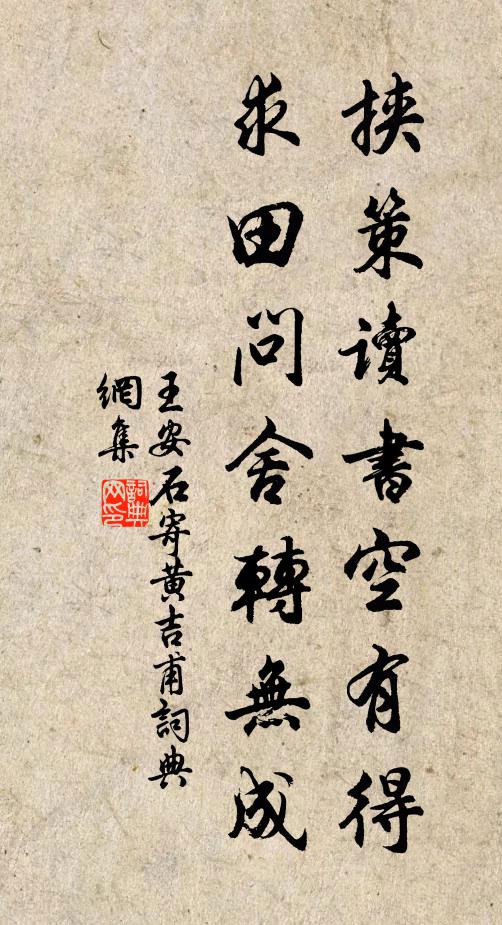 挾策讀書空有得
求田問舍轉無成
王安石寄黃吉甫詞典
網集
詞典
网印